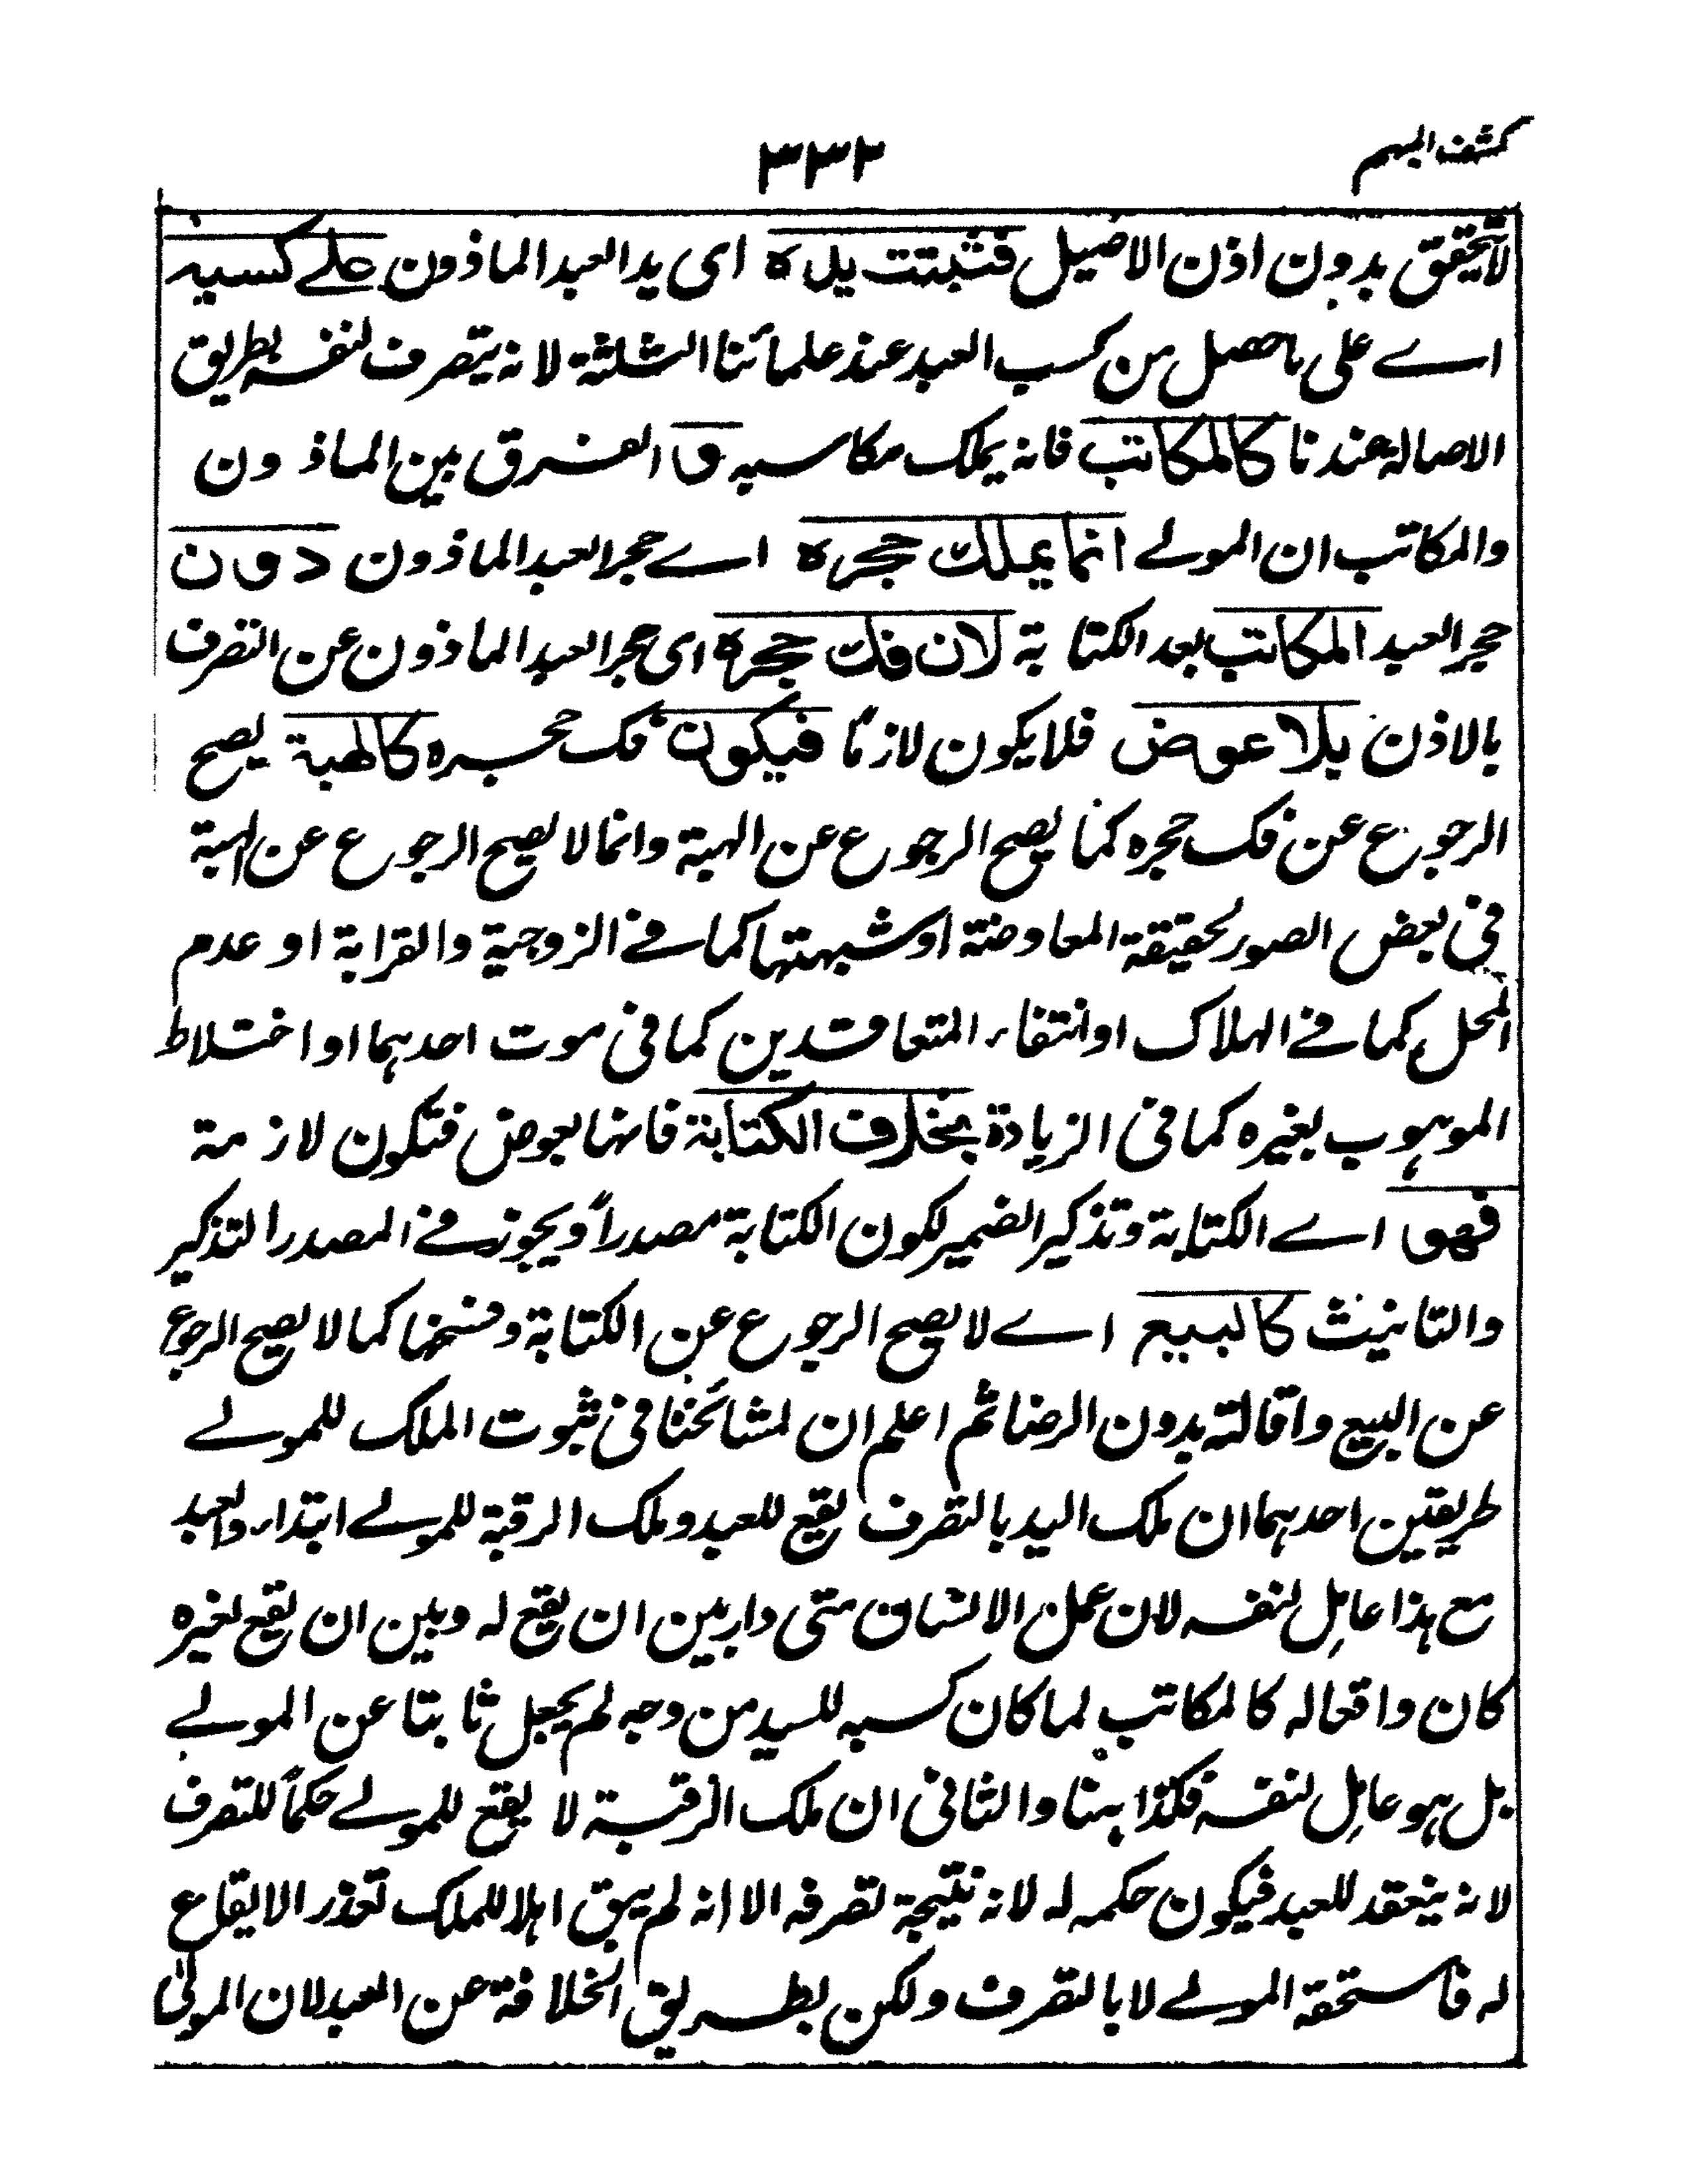 كشف المبهم
٣٣٢
لا يتحقق بدون اذن الاصيل فتثبت يده اى يد العبد الماذون على كسبه
اے على ما حصل من كسب العبد عند علمائنا الثلثة لانه يتصرف لنفسه بطريق
الاصالة عندنا كالمكاتب فانه يملك مكاسبه و الفرق بين الماذون
والمكاتب ان المولے انما يملك حجره اے حجر العبد الماذون دون
حجر العبد المكاتب بعد الكتابة لان فك حجره اى حجر العبد الماذون عن التصرف
بالاذن بلا عوض فلا يكون لازمًا فيكون فك حجره كالهبة يصح
الرجوع عن فك حجره كما يصح الرجوع عن الهبة وانما لا يصح الرجوع عن الهبة
فى بعض الصور لحقيقة المعاوضة او شبهتها كما فے الزوجية والقرابة او عدم
المحل كما فے الهلاك او انتفاء المتعاقدين كما فى موت احدهما او اختلاط
الموهوب بغيره كما فى الزيادة بخلاف الكتابة فانها بعوض فتكون لازمة
فهو اے الكتابة وتذكير الضمير لكون الكتابة مصدراً ويجوز فے المصدر التذكير
والتانيث كالبيع اے لا يصح الرجوع عن الكتابة وفسخها كما لا يصح الرجوع
عن البيع واقالته بدون الرضا ثم اعلم ان لمشائخنا فى ثبوت الملك للمولے
طريقين احدهما ان ملك اليد بالتصرف يقع للعبد وملك الرقبة للمولے ابتداء والعبد
مع هذا عامل لنفسه لان عمل الانسان متى دار بين ان يقع له وبين ان يقع لغيره
كان واقعا له كالمكاتب لما كان كسبه للسيد من وجه لم يجعل ثابتا عن المولے
بل هو عامل لنفسه فكذا هنا والثانى ان ملك الرقبة لا يقع للمولے حكماً للتصرف
لانه ينعقد للعبد فيكون حكمه له لانه نتيجة تصرفه الا انه لم يبق اهلا للملك تعذر الايقاع
له فاستحقه المولے لا بالتصرف ولكن بطريق الخلافة عن العبد لان المولى